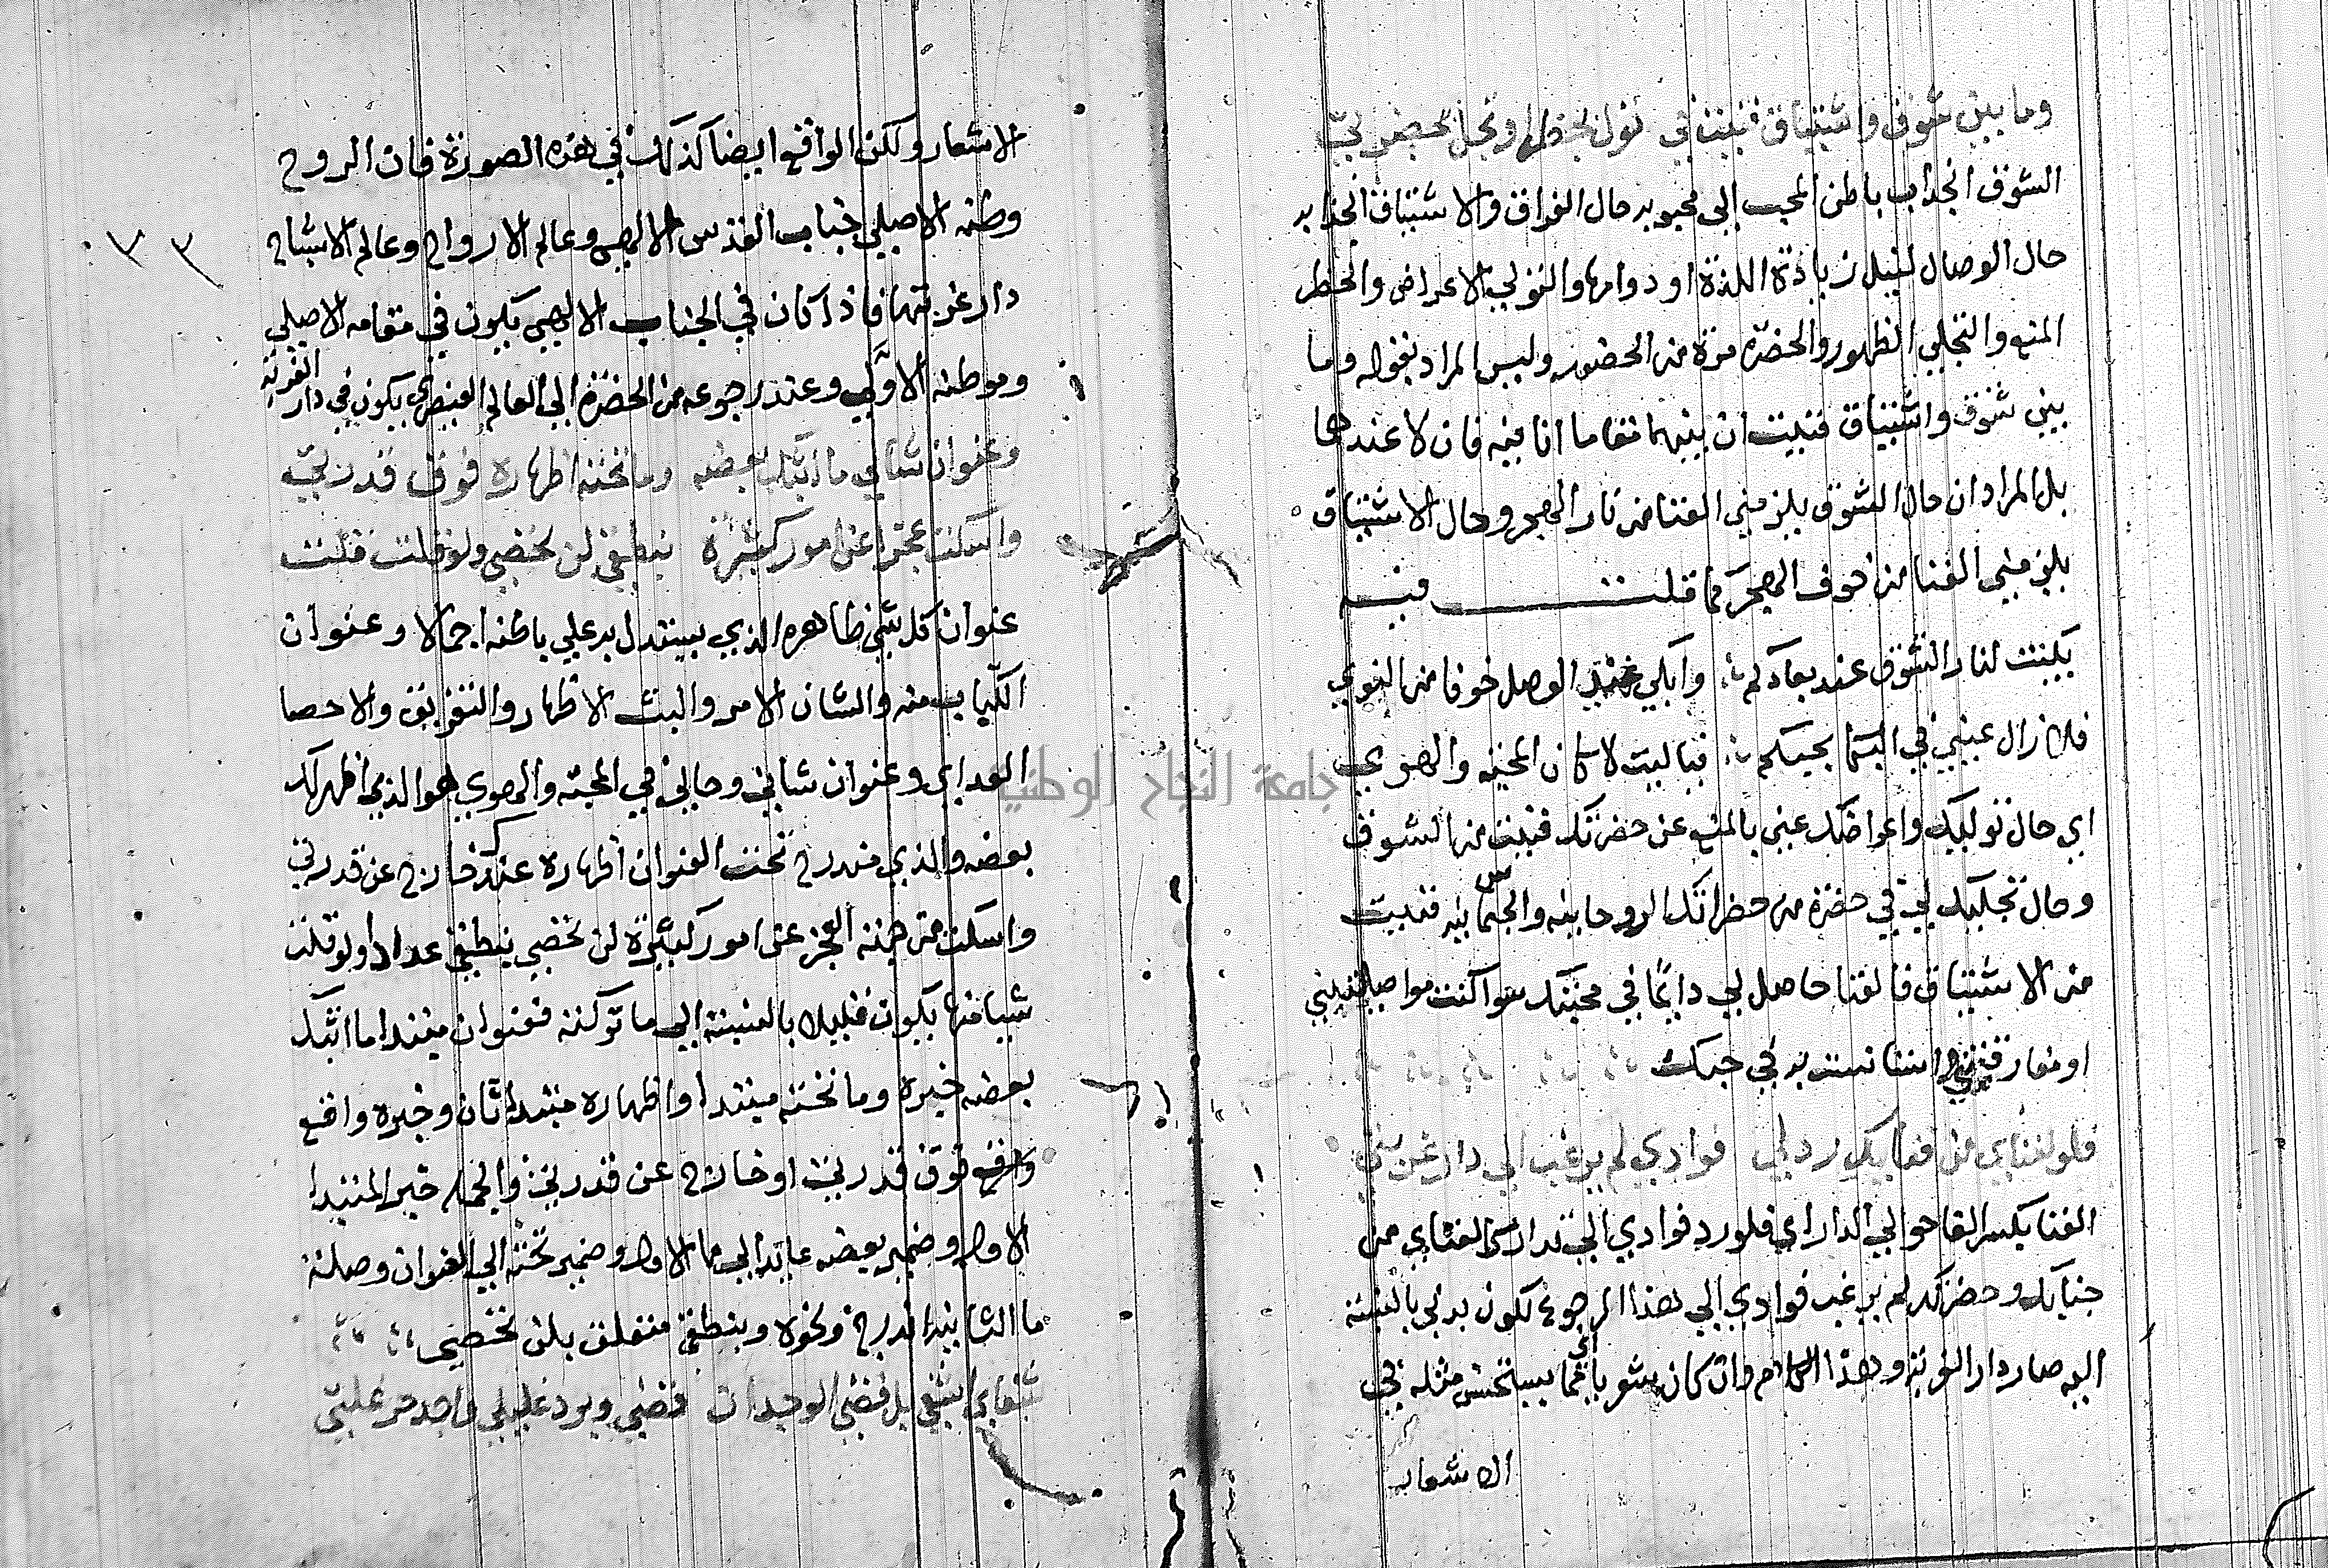 وما بين شوق واشتياق فنيت في تول بحظر او تجل بحضرتي
الشوق انجذاب باطن المحب الى محبوبه حال الفراق والاشتياق انجذابه
حال الوصال لنيل زيادة اللذة او دوامها والتولي الاعراض والحظر
المنع والتجلي الظهور والحضرة مرة من الحضور وليس المراد بقوله وما
بين شوق واشتياق فنيت ان بينهما مقاما انا فيه فان لا عندهما
بل المراد ان حال الشوق يلزمني الفنا من نار الهجر وحال الاشتياق
يلزمني الفنا من خوف الهجر مما قلت فيه
بكيت لنار الشوق عند بعادكم وابكي عند الوصل خوفا من النوي
فلا زال عيني في البكا بحبكم فياليت لا كان المحبة والهوي
اي حال توليك واعراضك عني بالمنع عن حضرتك فنيت من الشوق
وحال تجليك لي في حضرة من حضراتك الروحانية والجسمانية فنيت
من الاشتياق فالفنا حاصل لي دايما في محبتك سوا كنت مواصلتني
او مفارقتني استانست به في حبك
فلو لفناي من فنايك رد لي فوادي لم يرغب الي دار غربتي
الفنا بكسر الفا حوالي الدار اي فلو رد فوادي الي تدارك الفناي من
جنابك وحضرتك لم يرغب فوادي الي هذا الرجوع لكون بدني بالنسبة
اليه صار دار الغربة وهذا الكلام وان كان شوبا مما يستحسن مثله في
الاشعار
الاشعار ولكن الواقع ايضا كذلك في هذه الصورة فان الروح
وطنه الاصلي جناب القدس الالهي وعالم الارواح وعالم الاشباح
دار غربتها فاذا كان في الجناب الالهي يكون في مقامه الاصلي
وموطنه الاولي وعند رجوعه من الحضرة الي العالم العنصري يكون في دار الغربة
وعنوان شاني ما ابثك بعضه وما تحته اظهاره فوق قدرتي
واسكت عجزا عن امور كثيرة بنطقي لن تحصي ولو قلت قلت
عنوان كل شي ظاهره الذي يستدل به علي باطنه اجمالا وعنوان
الكتاب منه والشان الامر والبث الاظهار والتفريق والاحصا
العد اي وعنوان شاني وحالي في المحبة والهوي هو الذي اظهر لك
بعضه والذي مندرج تحت العنوان اظهاره عندك خارج عن قدرتي
واسكت من جهة العجز عن امور كثيرة لن تحصي بنطقي عدادا ولو قلت
شيا منها يكون قليلا بالنسبة الي ما تركته فعنوان مبتدا ما ابثك
بعضه خبره وما تحته مبتدا واظهاره مبتدا ثان وخبره واقع
فوق قدرتي او خارج عن قدرتي والجملة خبر المبتدا
الاول وضمير بعضه عايد الي ما الاول وضمير تحته الي العنوان وصلة
ما الثانية اندرج ونحوه وبنطقي متعلق بلن تحصي
شفاي اشفي بل قضي الوجد ان قضي وبرد غليلي واجد حر غلتي
٣٣
جامعة النجاح الوطنية